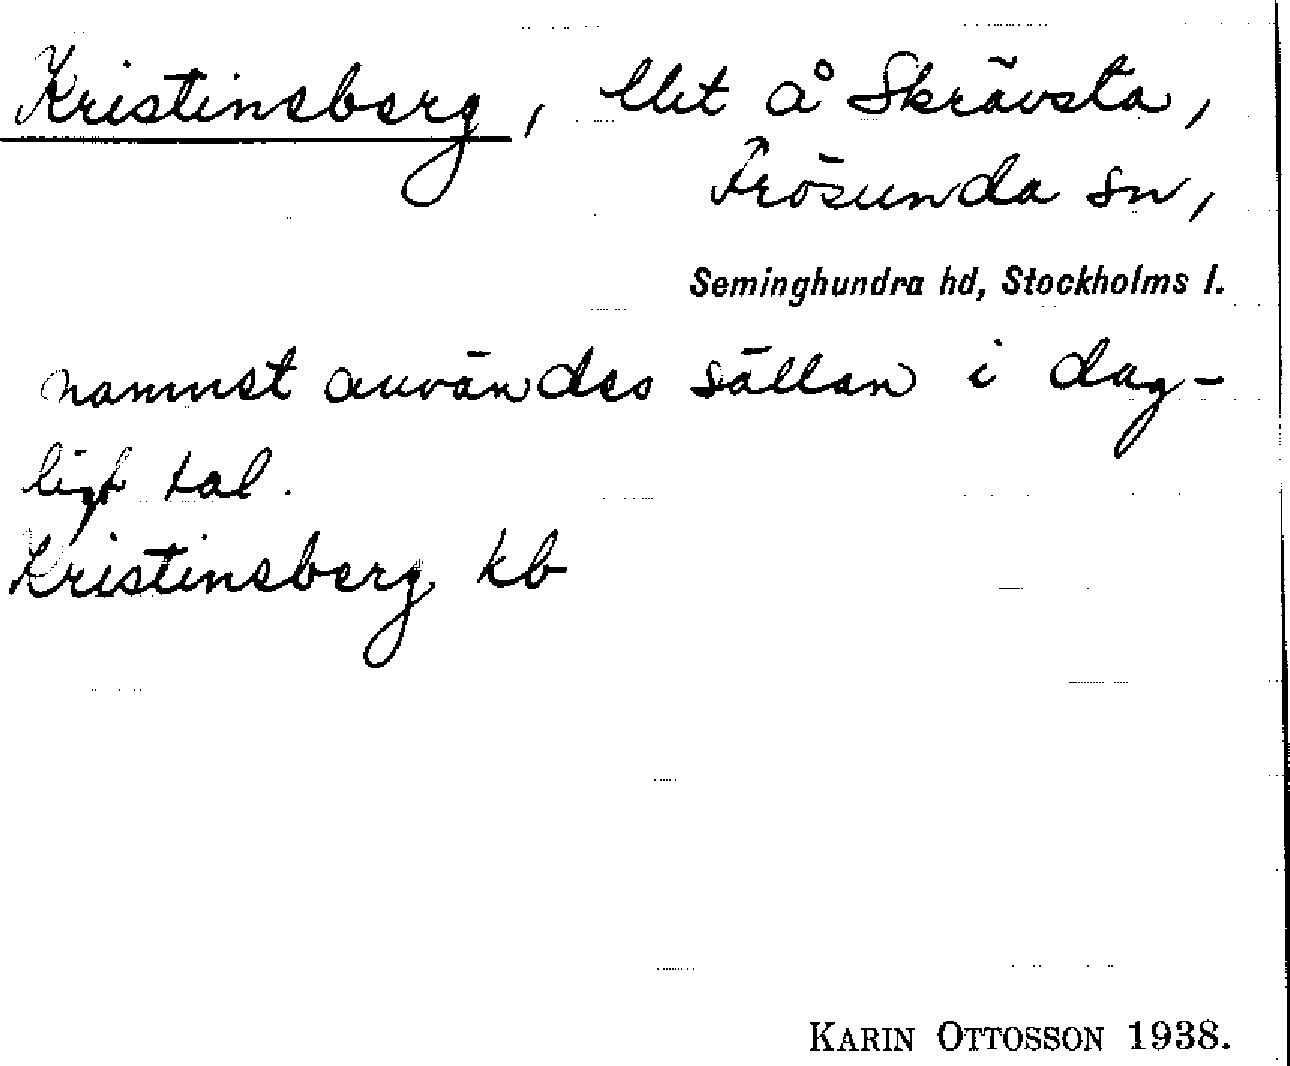 Kristinsberg, lht å Skrävsta,
Frösunda sn,
Seminghundra hd, Stockholms l.
namnet användes sällan i dag-
ligt tal.
Kristinsberg kb
KARIN OTTOSSON 1938.